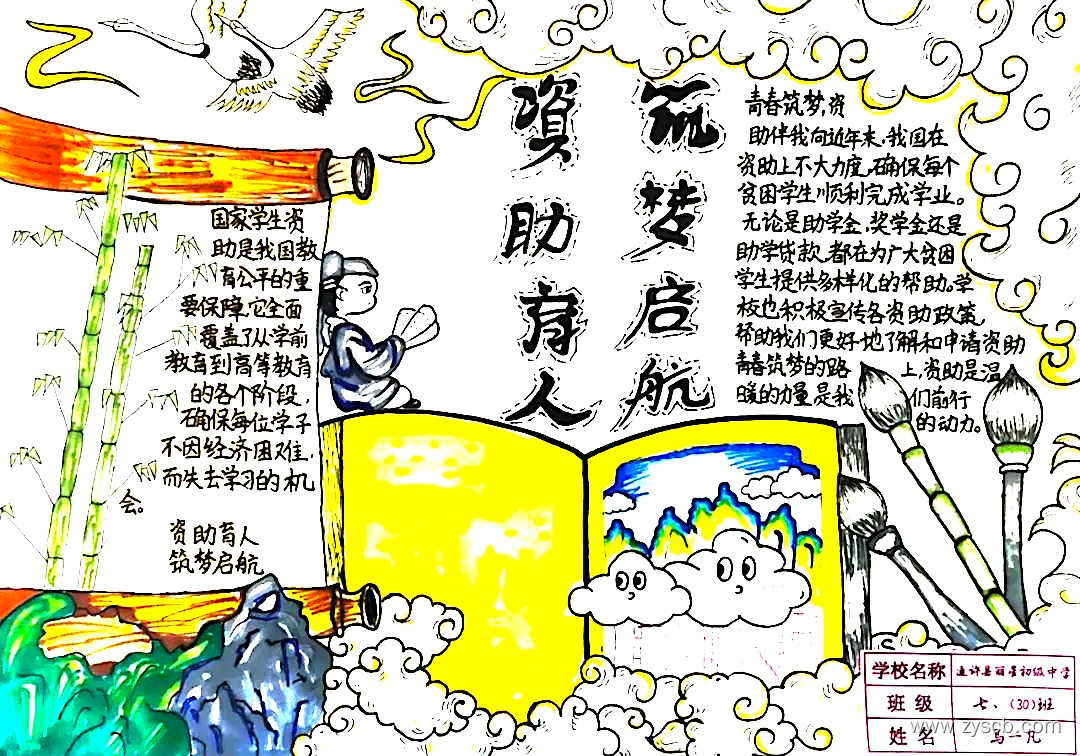 資助育人
筑梦启航
国家学生资
助是我国教
育公平的重
要保障,它全面
覆盖了从学前
教育到高等教育
的各个阶段,
确保每位学子
不因经济困难,
而失去学习的机
会。
资助育人
筑梦启航
青春筑梦,资
助伴我向近年来,我国在
资助上不大力度,确保每个
贫困学生顺利完成学业。
无论是助学金,奖学金还是
助学贷款,都在为广大贫困
学生提供多样化的帮助。学
校也积极宣传各资助政策,
帮助我们更好地了解和申请资助
青春筑梦的路上,资助是温
暖的力量是我们前行
的动力。
学校名称 通许县丽星初级中学
班级 七、(30)班
姓名 马一凡
www.zyscb.com